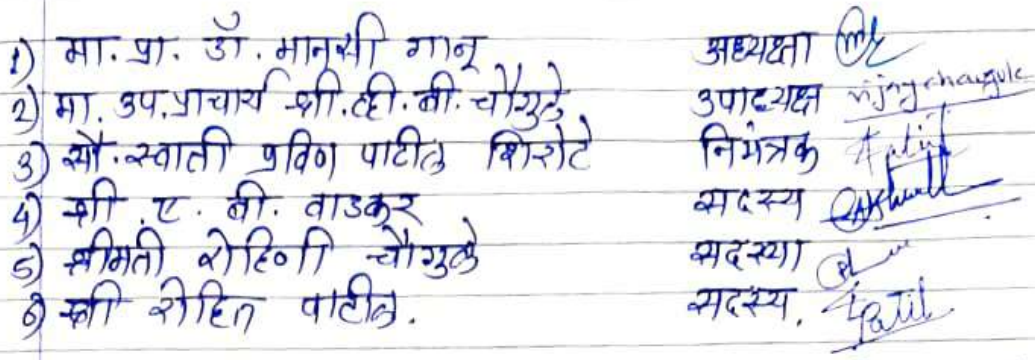 1) मा. प्रा. डॉ. मानसी गानू अध्यक्षा
2) मा. उप. प्राचार्य श्री. व्ही. बी. चौगुले उपाध्यक्ष vijay chaugule
3) सौ. स्वाती प्रविण पाटील शिरोटे निमंत्रक
4) श्री. ए. बी. वाडकर सदस्य
5) श्रीमती रोहिणी चौगुले सदस्या
6) श्री रोहित पाटील. सदस्य. Patil